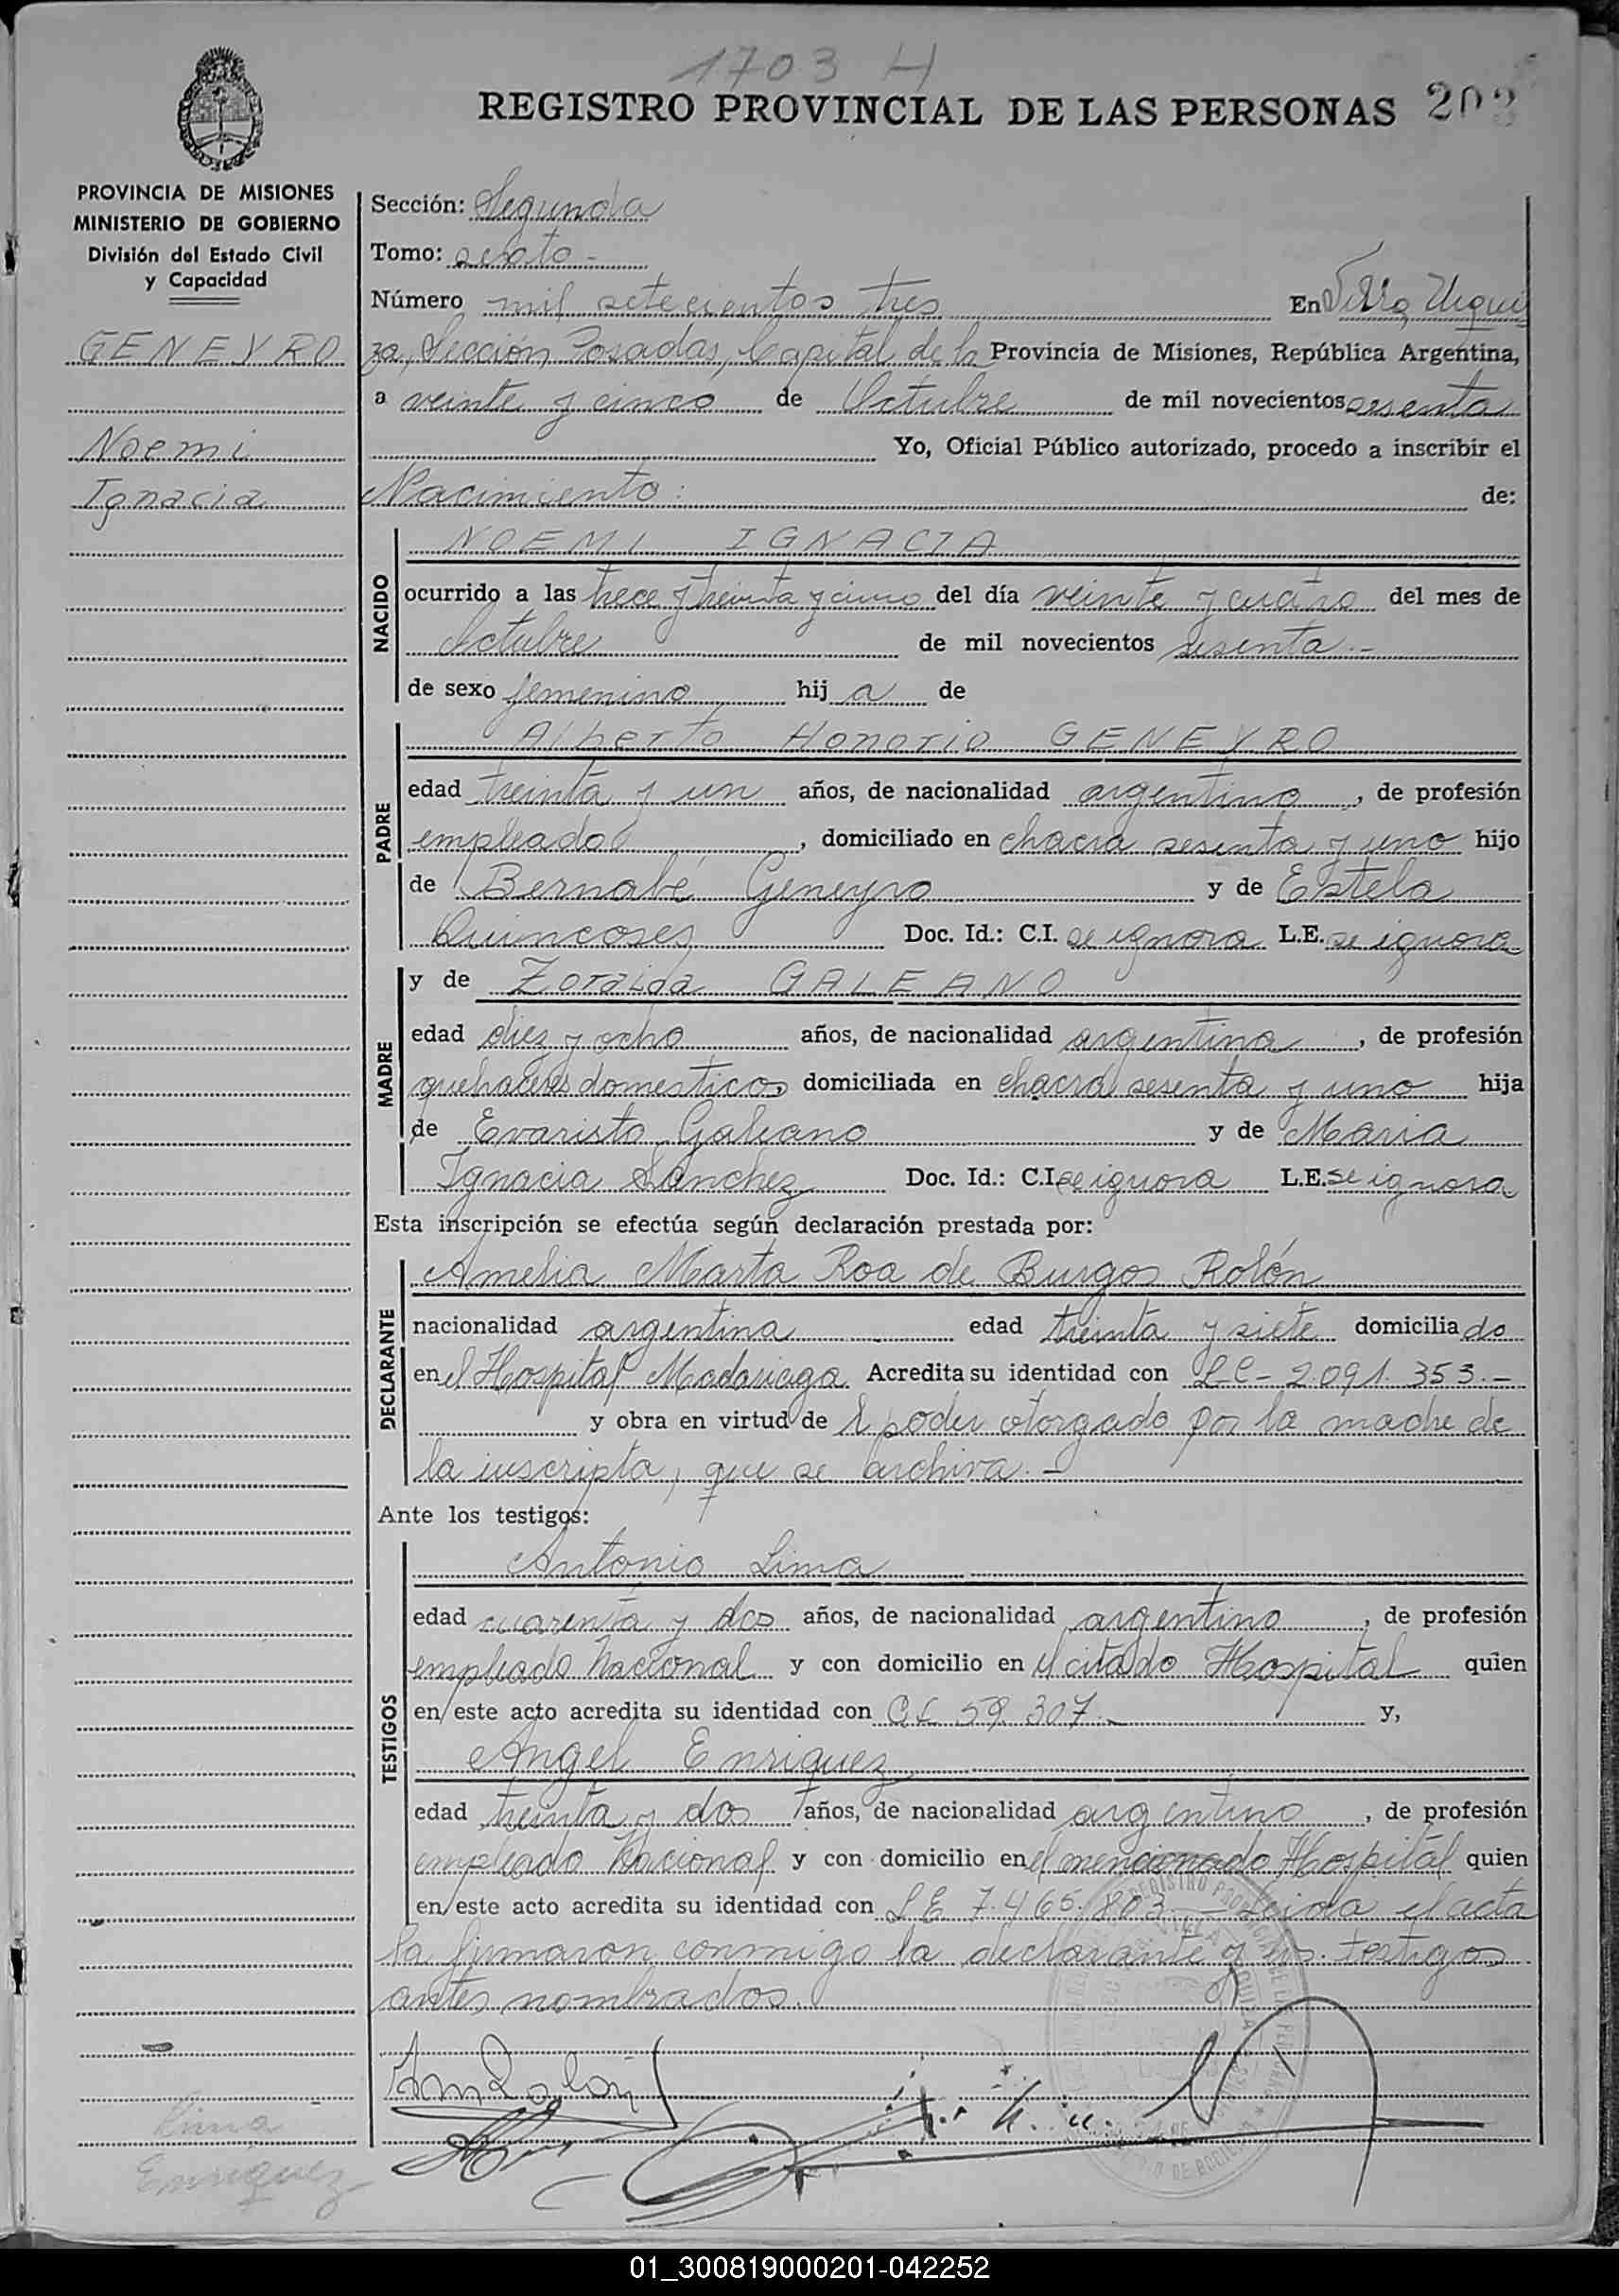 1703 H
REGISTRO PROVINCIAL DE LAS PERSONAS 203
PROVINCIA DE MISIONES
MINISTERIO DE GOBIERNO
División del Estado Civil
y Capacidad
GENEYRO
Noemi
Ignacia
Sección: Segunda
Tomo: sexto -
Número mil setecientos tres En Villa Urqui
za, Sección Posadas, Capital de la Provincia de Misiones, República Argentina,
a veinte y cinco de Octubre de mil novecientos sesenta
Yo, Oficial Público autorizado, procedo a inscribir el
Nacimiento: de:
NACIDO
NOEMI IGNACIA
ocurrido a las trece y treinta y cinco del día veinte y cuatro del mes de
Octubre de mil novecientos sesenta.-
de sexo femenino hij a de
PADRE
Alberto Honorio GENEYRO
edad treinta y un años, de nacionalidad argentino, de profesión
empleado, domiciliado en chacra sesenta y uno hijo
de Bernabé Geneyro y de Estela
Quincoses Doc. Id.: C.I. se ignora L.E. se ignora
MADRE
y de Zoraida GALEANO
edad diez y ocho años, de nacionalidad argentina, de profesión
quehaceres domesticos, domiciliada en chacra sesenta y uno hija
de Evaristo Galeano y de Maria
Ignacia Sánchez Doc. Id.: C.I. se ignora L.E. se ignora
Esta inscripción se efectúa según declaración prestada por:
DECLARANTE
Amelia Marta Roa de Burgos Rolón
nacionalidad argentina edad treinta y siete domiciliado
en el Hospital Madariaga Acredita su identidad con LC - 2.091.353.-
y obra en virtud de l poder otorgado por la madre de
la inscripta, que se archiva.-
Ante los testigos:
TESTIGOS
Antonio Lima
edad cuarenta y dos años, de nacionalidad argentino, de profesión
empleado Nacional y con domicilio en el citado Hospital quien
en este acto acredita su identidad con C.I. 59.307.- y,
Angel Enriquez
edad treinta y dos años, de nacionalidad argentino, de profesión
empleado Nacional y con domicilio en el mencionado Hospital quien
en este acto acredita su identidad con LE 7.465.803.- Leida el acta
la firmaron conmigo la declarante y los testigos
antes nombrados.
Lima
Enriquez
01_300819000201-042252